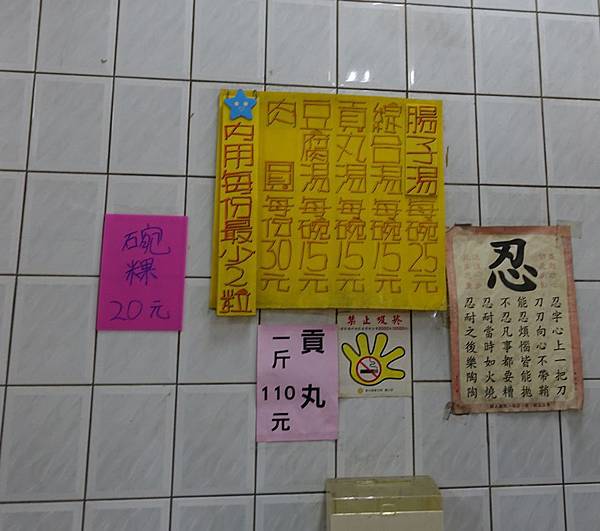 腸子湯每碗25元
綜合湯每碗15元
貢丸湯每碗15元
豆腐湯每碗15元
肉圓每份30元
內用每份最少2粒
碗粿
20元
貢丸
一斤110元
禁止吸菸
忍
忍字心上一把刀
刀刀向心不帶鞘
能忍煩惱皆能拋
不忍凡事都要糟
忍耐當時如火燒
忍耐之後樂陶陶